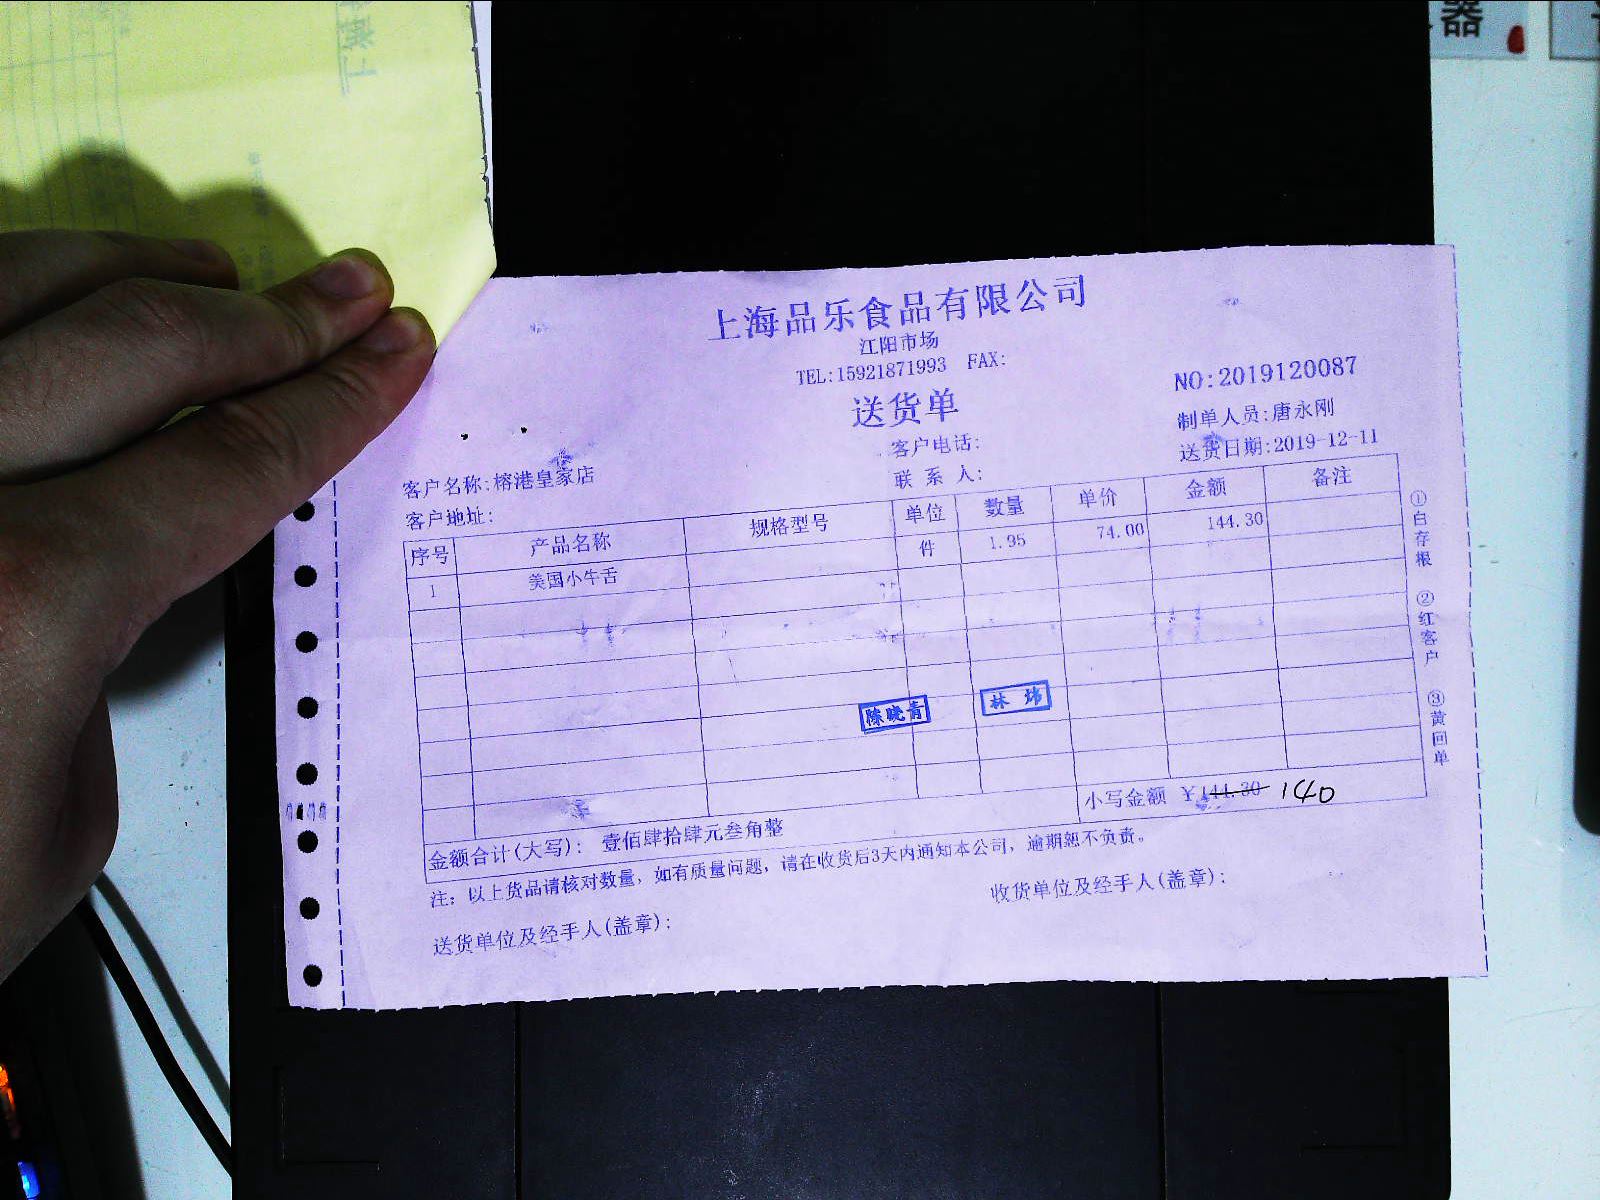 器
上海品乐食品有限公司
江阳市场
TEL:15921871993 FAX:
NO:2019120087
送货单
制单人员:唐永刚
客户电话:
送货日期:2019-12-11
客户名称:榕港皇家店
联系人:
客户地址:
序号 产品名称 规格型号 单位 数量 单价 金额 备注
1 美国小牛舌 件 1.95 74.00 144.30
陈晓青 林炜
小写金额 ￥144.30 140
金额合计(大写): 壹佰肆拾肆元叁角整
注: 以上货品请核对数量, 如有质量问题, 请在收货后3天内通知本公司, 逾期恕不负责。
送货单位及经手人(盖章):
收货单位及经手人(盖章):
①白存根 ②红客户 ③黄回单